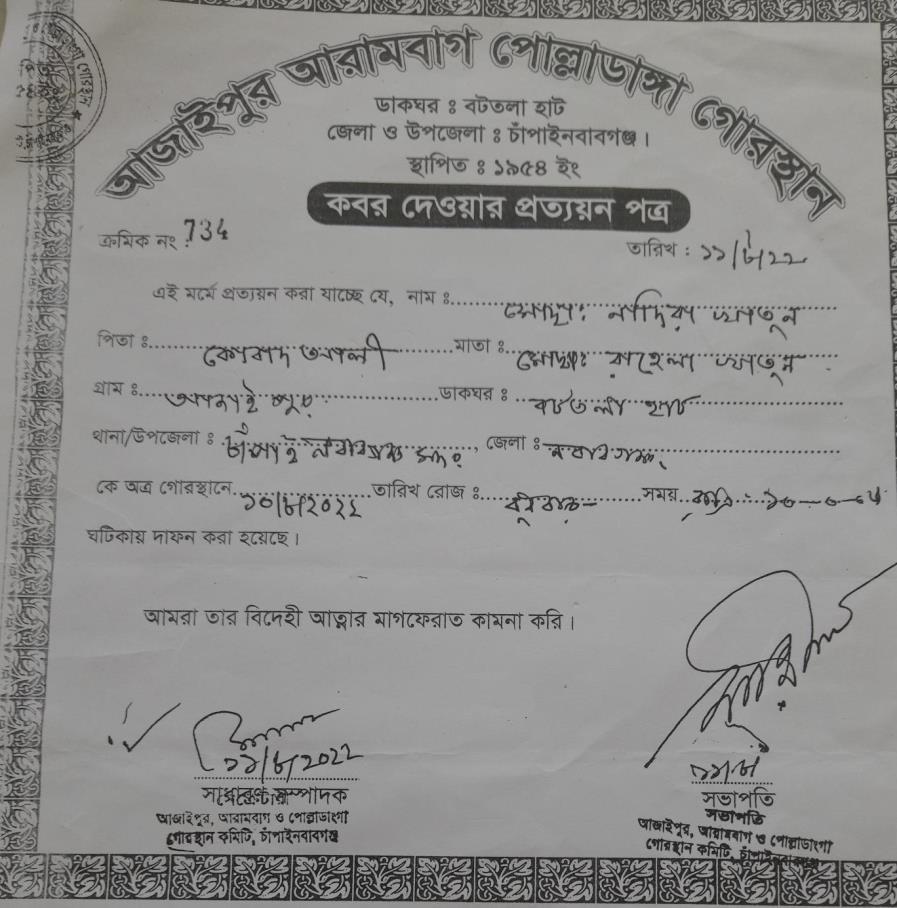 আজাইপুর আরামবাগ পোল্লাডাঙ্গা গোরস্থান
ডাকঘর ঃ বটতলা হাট
জেলা ও উপজেলা ঃ চাঁপাইনবাবগঞ্জ।
স্থাপিত ঃ ১৯৫৪ ইং
কবর দেওয়ার প্রত্যয়ন পত্র
ক্রমিক নং 734 তারিখ : ১১/৮/২২
এই মর্মে প্রত্যয়ন করা যাচ্ছে যে, নাম ঃ মোসাঃ নাদিরা খাতুন
পিতা ঃ কোবাদ আলী মাতা ঃ মোসাঃ রাহেলা খাতুন
গ্রাম ঃ আজাইপুর ডাকঘর ঃ বটতলা হাট
থানা/উপজেলা : চাঁপাই নবাবগঞ্জ সদর, জেলা ঃ নবাবগঞ্জ,
কে অত্র গোরস্থানে ১০/৮/২০২২ তারিখ রোজ ঃ বুধবার সময় রাত্রি :
ঘটিকায় দাফন করা হয়েছে।
আমরা তার বিদেহী আত্নার মাগফেরাত কামনা করি।
১১/৮/২০২২
সাধারণ সম্পাদক
আজাইপুর, আরামবাগ ও পোল্লাডাংগা
গোরস্থান কমিটি, চাঁপাইনবাবগঞ্জ
১১/৮/
সভাপতি
সভাপতি
আজাইপুর, আরামবাগ ও পোল্লাডাংগা
গোরস্থান কমিটি, চাঁপাইনবাবগঞ্জ